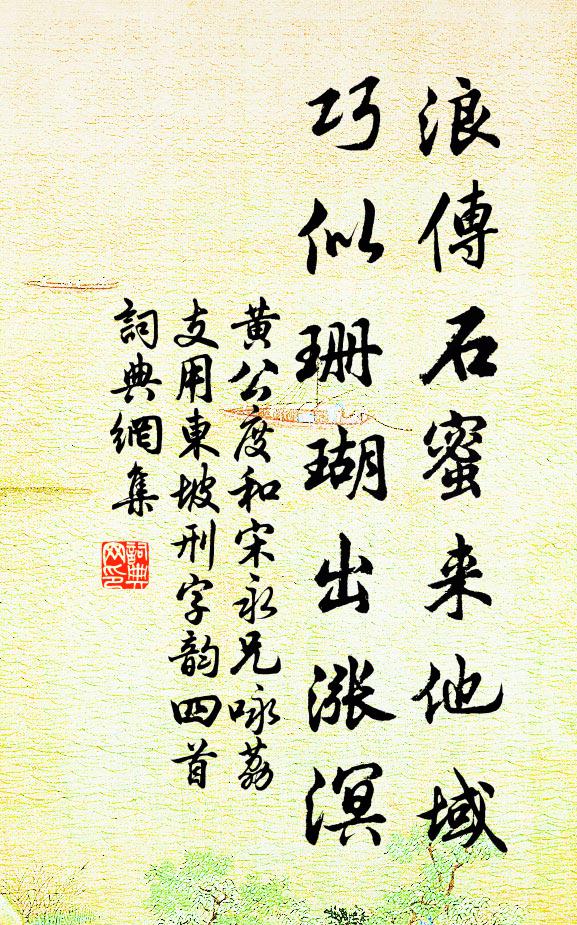 浪傳石蜜来他域
巧似珊瑚出漲溟
黄公度和宋永兄咏荔
支用東坡刑字韵四首
詞典網集
詞典
网印